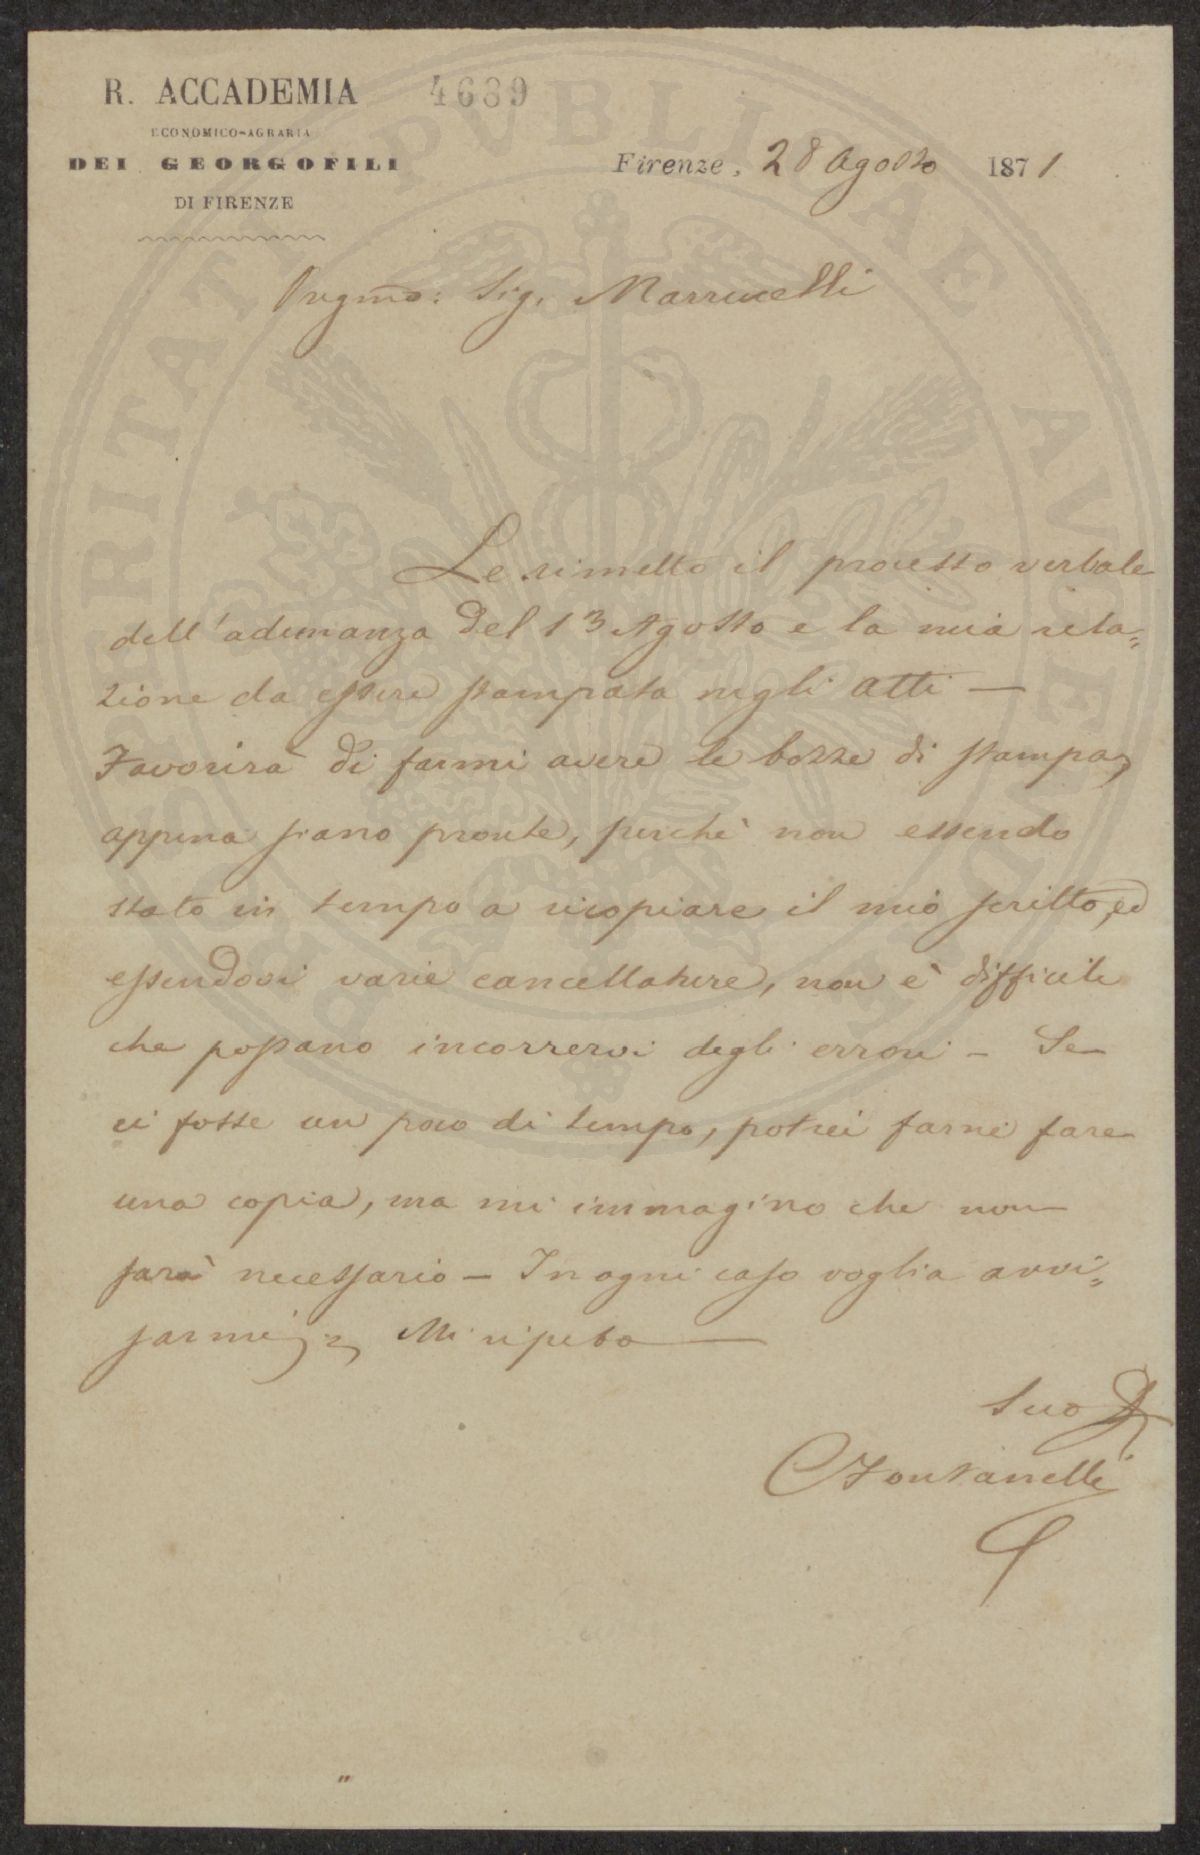 R. ACCADEMIA
ECONOMICO-AGRARIA
DEI GEORGOFILI
DI FIRENZE
4689
Firenze, 28 Agosto 1871
Pregmo: Sig. Marrucelli
Le rimetto il processo verbale
dell'adunanza del 13 Agosto e la mia rela„
zione da essere stampata negli atti —
Favorirà di farmi avere le bozze di stampa,
appena siano pronte, perchè non essendo
stato in tempo a ricopiare il mio scritto, ed
essendovi varie cancellature, non è difficile
che possano incorrervi degli errori – Se
ci fosse un poco di tempo, potrei farne fare
una copia, ma mi immagino che non
sarà necessario – In ogni caso voglia avvi„
sarmi, Mi ripeto —
Suo
C Fontanelli
PROSPERITATI PVBLICAE AVGENDAE